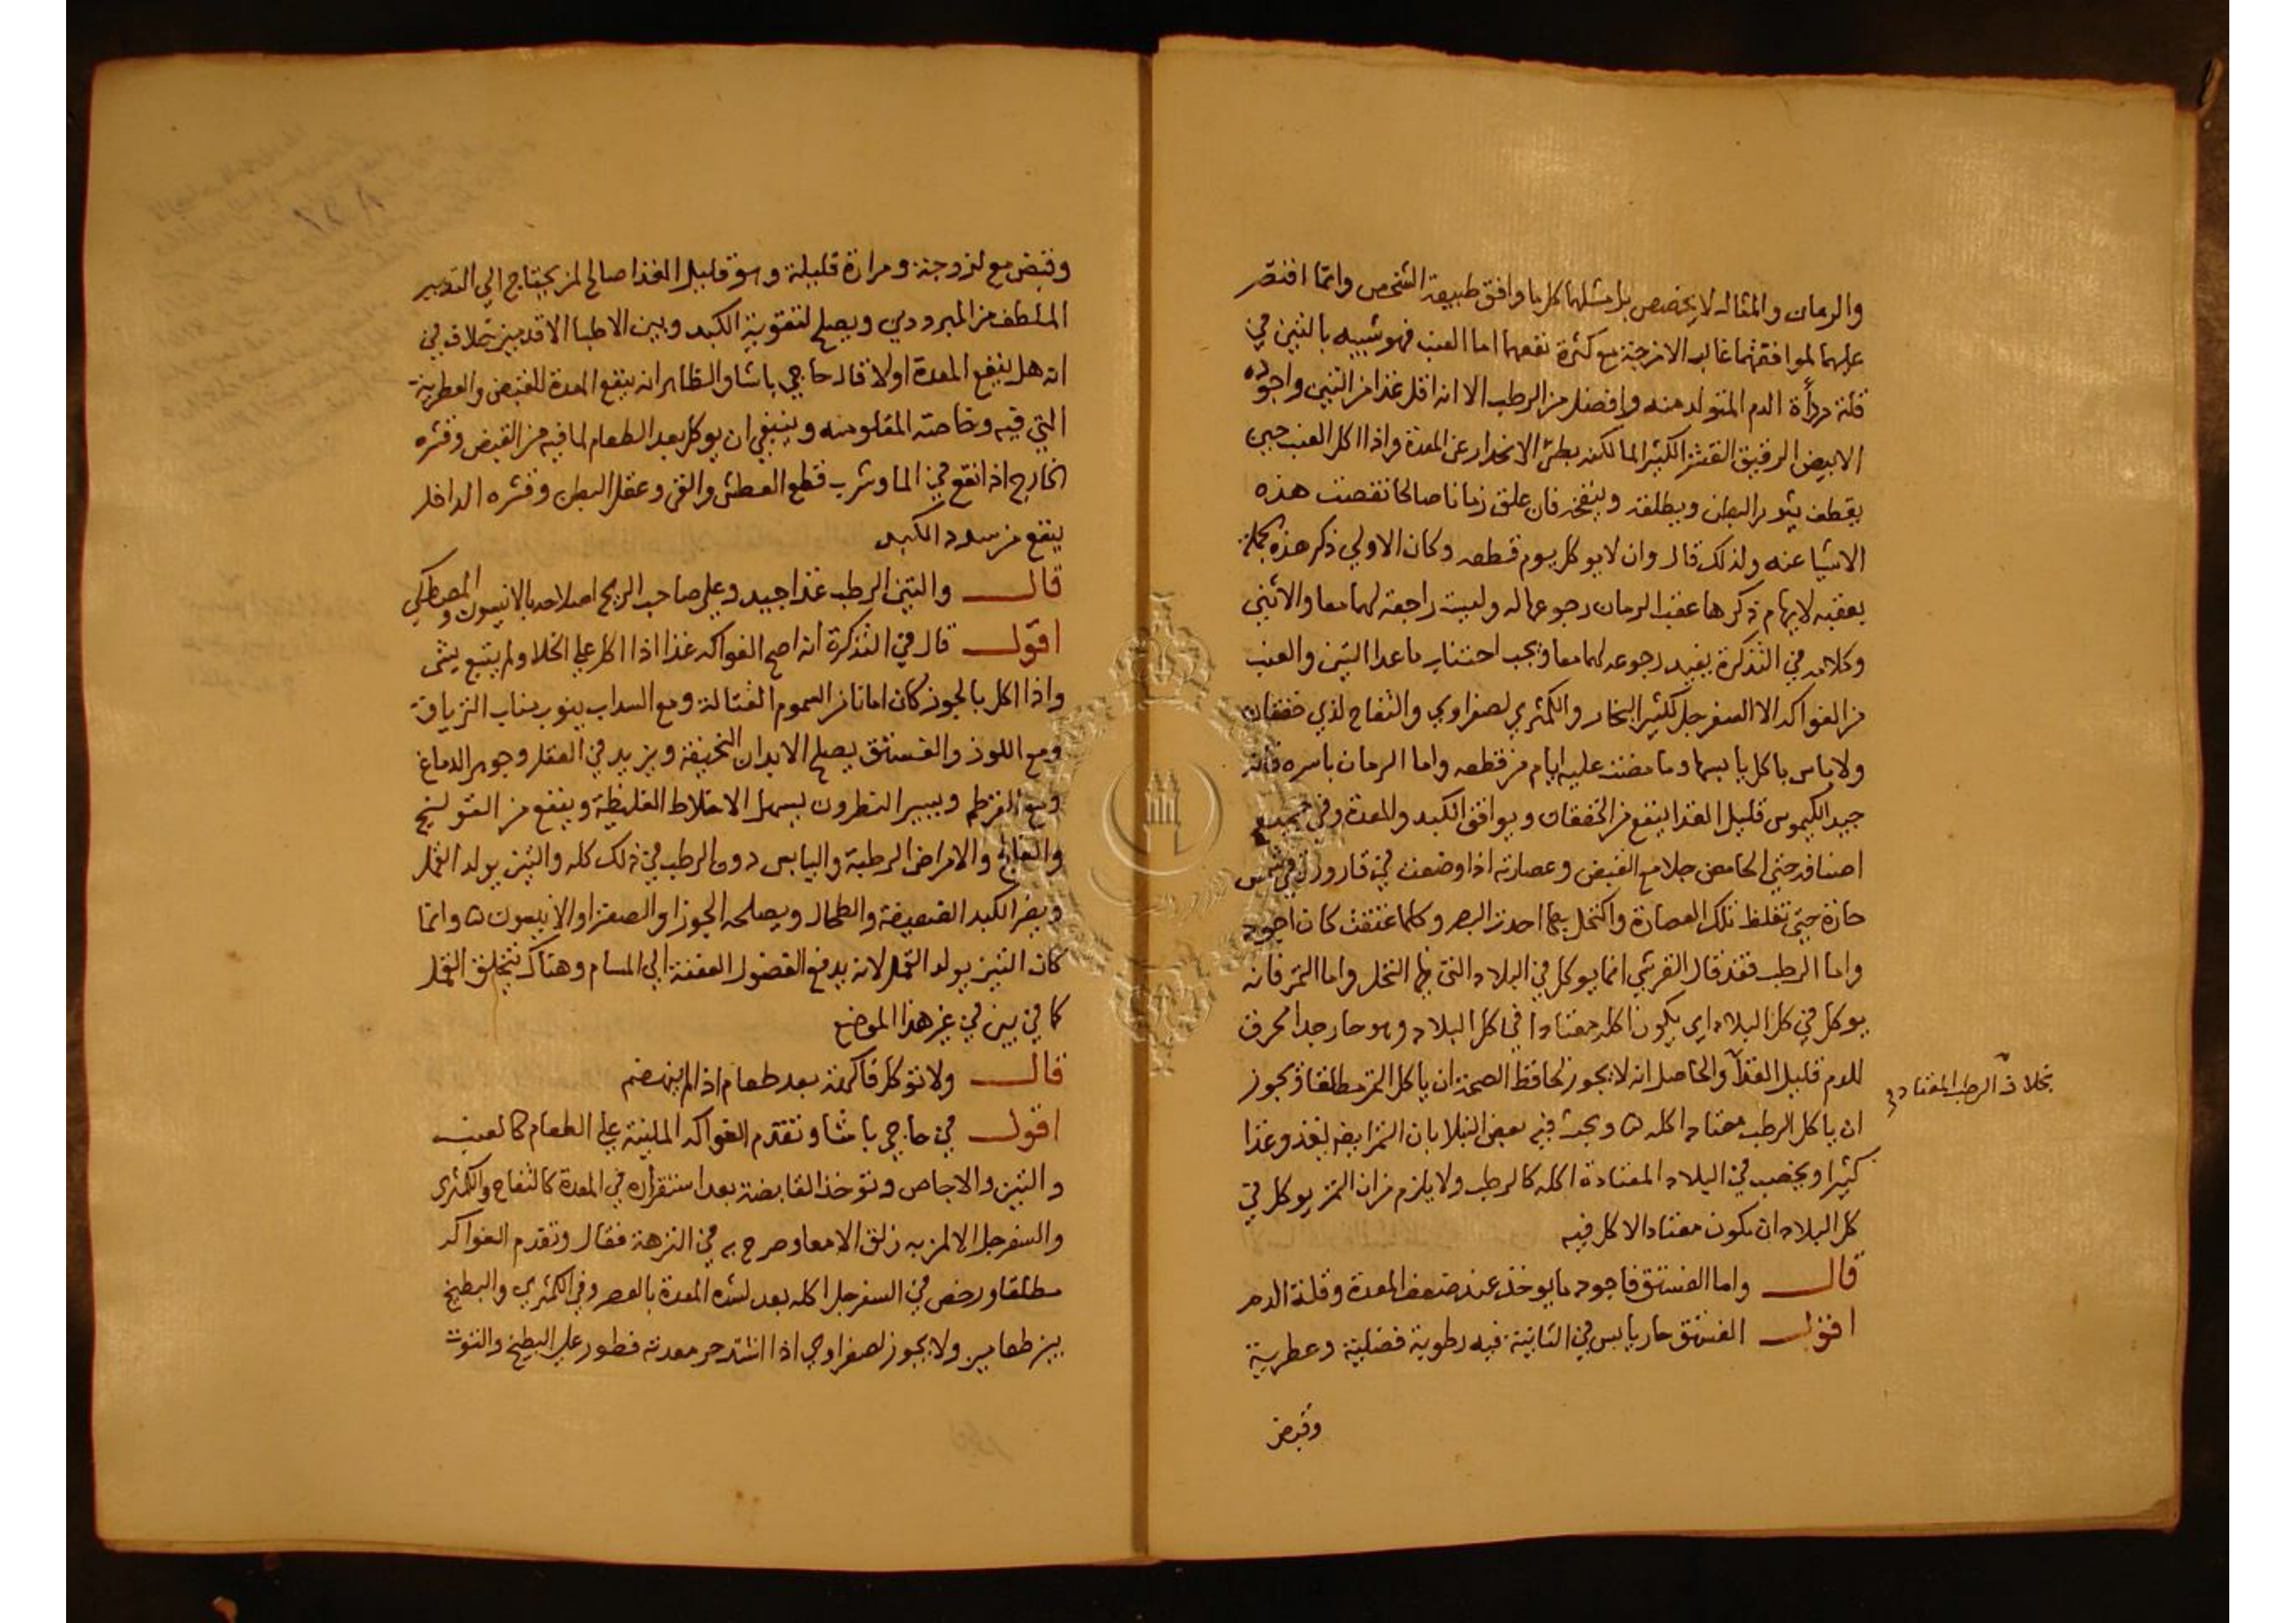 والرمان والمثال لا يخصص بل مثلهما كل ما وافق طبيعة الشخص وانما اقتصر
عليهما لموافقتهما غالب الامزجة مع كثرة نفعهما اما العنب فهو شبيه بالتين في
قلة رداءة الدم المتولد منه وافضل من الرطب الا انه اقل غذا من التين واجوده
الابيض الرقيق القشر الكثير الما لكنه بطئ الانحدار عن المعدة واذا اكل العنب حين
يقطف يثور البطن ويطلقه وينفخه فان علق زمانا صالحا نقصت هذه
الاشيا عنه ولذلك قال وان لا يوكل يوم قطعه وكان الاولي ذكر هذه بجملة
يعقبه لايهام ذكرها عقب الرمان رجوعها له وليست راجعة لهما معا والاثنى
وكلامه في التذكرة يفيد رجوعه لهما معا ويجب اجتناب ما عدا التين والعنب
من الفواكه الا السفرجل لكثير البخار والكمثري لصفراوي والتفاح لذي خفقان
ولا باس باكل يابسها وما مضت عليه ايام من قطعه واما الرمان باسره فانه
جيد الكيموس قليل الغذا ينفع من الخفقان ويوافق الكبد والمعدة وفي جميع
اصنافه حتي الحامض جلا مع القبض وعصارته اذا وضعت في قارورة في شمس
حارة حتي تغلظ تلك العصارة واكتحل بها احدت البصر وكلما عتقت كان اجود
واما الرطب فقد قال القرشي انما يوكل في البلاد التي بها النخل واما التمر فانه
يوكل في كل البلاد اي يكون اكله معتادا في كل البلاد وهو حار جدا محرق
للدم قليل الغذا والحاصل انه لا يجوز لحافظ الصحة ان ياكل التمر مطلقا ويجوز
بخلاف الرطب المعتاد
ان ياكل الرطب معتاد اكله ه وبحث فيه بعض النبلا بان التمر ايضا يغذو غذا
كثيرا ويخصب في البلاد المعتادة اكله كالرطب ولا يلزم من ان التمر يوكل في
كل البلاد ان يكون معتاد الاكل فيه
قال واما الفستق فاجود ما يوخذ عند ضعف المعدة وقلة الدم
اقول الفستق حار يابس في الثانية فيه رطوبة فضلية وعطرية
وقبض
وقبض مع لزوجة ومرارة قليلة وهو قليل الغذا صالح لمن يحتاج الي التدبير
الملطف من المبرودين ويصلح لتقوية الكبد وبين الاطبا الاقدمين خلاف في
انه هل ينفع المعدة اولا قال حاجي باشا والظاهر انه ينفع المعدة للقبض والعطرية
التي فيه وخاصته المقلو منه وينبغي ان يوكل بعد الطعام لما فيه من القبض وقشره
الخارج اذا نقع في الما وشرب قطع العطش والقي وعقل البطن وقشره الداخل
ينفع من سدد الكبد
قال والتين الرطب غذا جيد وعلي صاحب الريح اصلاحه بالانيسون والمصطكي
اقول قال في التذكرة انه اصح الفواكه غذا اذا اكل علي الخلا ولم يتبع بشئ
واذا اكل بالجوز كان امانا من السموم القتالة ومع السداب ينوب مناب الترياق
ومع اللوز والفستق يصلح الابدان النحيفة ويزيد في العقل وجوهر الدماغ
ومع القرطم ويسير النطرون يسهل الاخلاط الغليظة وينفع من القولنج
والفالج والامراض الرطبة واليابس دون الرطب في ذلك كله والتين يولد القمل
ويضر الكبد الضعيفة والطحال ويصلحه الجوز او الصعتر او الانيسون ه وانما
كان التين يولد القمل لانه يدفع الفضول العفنة الي المسام وهناك تتخلق القمل
كما في بين في غير هذا الموضع
قال ولا توكل فاكهة بعد طعام اذا لم ينهضم
اقول في حاجي باشا وتقدم الفواكه الملينة علي الطعام كالعنب
والتين والاجاص وتوخذ القابضة بعد استقراره في المعدة كالتفاح والكمثري
والسفرجل الا لمن به زلق الامعا وصرح به في النزهة فقال وتقدم الفواكه
مطلقا ورخص في السفرجل اكله بعد لشده المعدة بالعصر وفي الكمثري والبطيخ
بين طعامين ولا يجوز لصفراوي اذا اشتد حر معدته فطور علي البطيخ والتوت